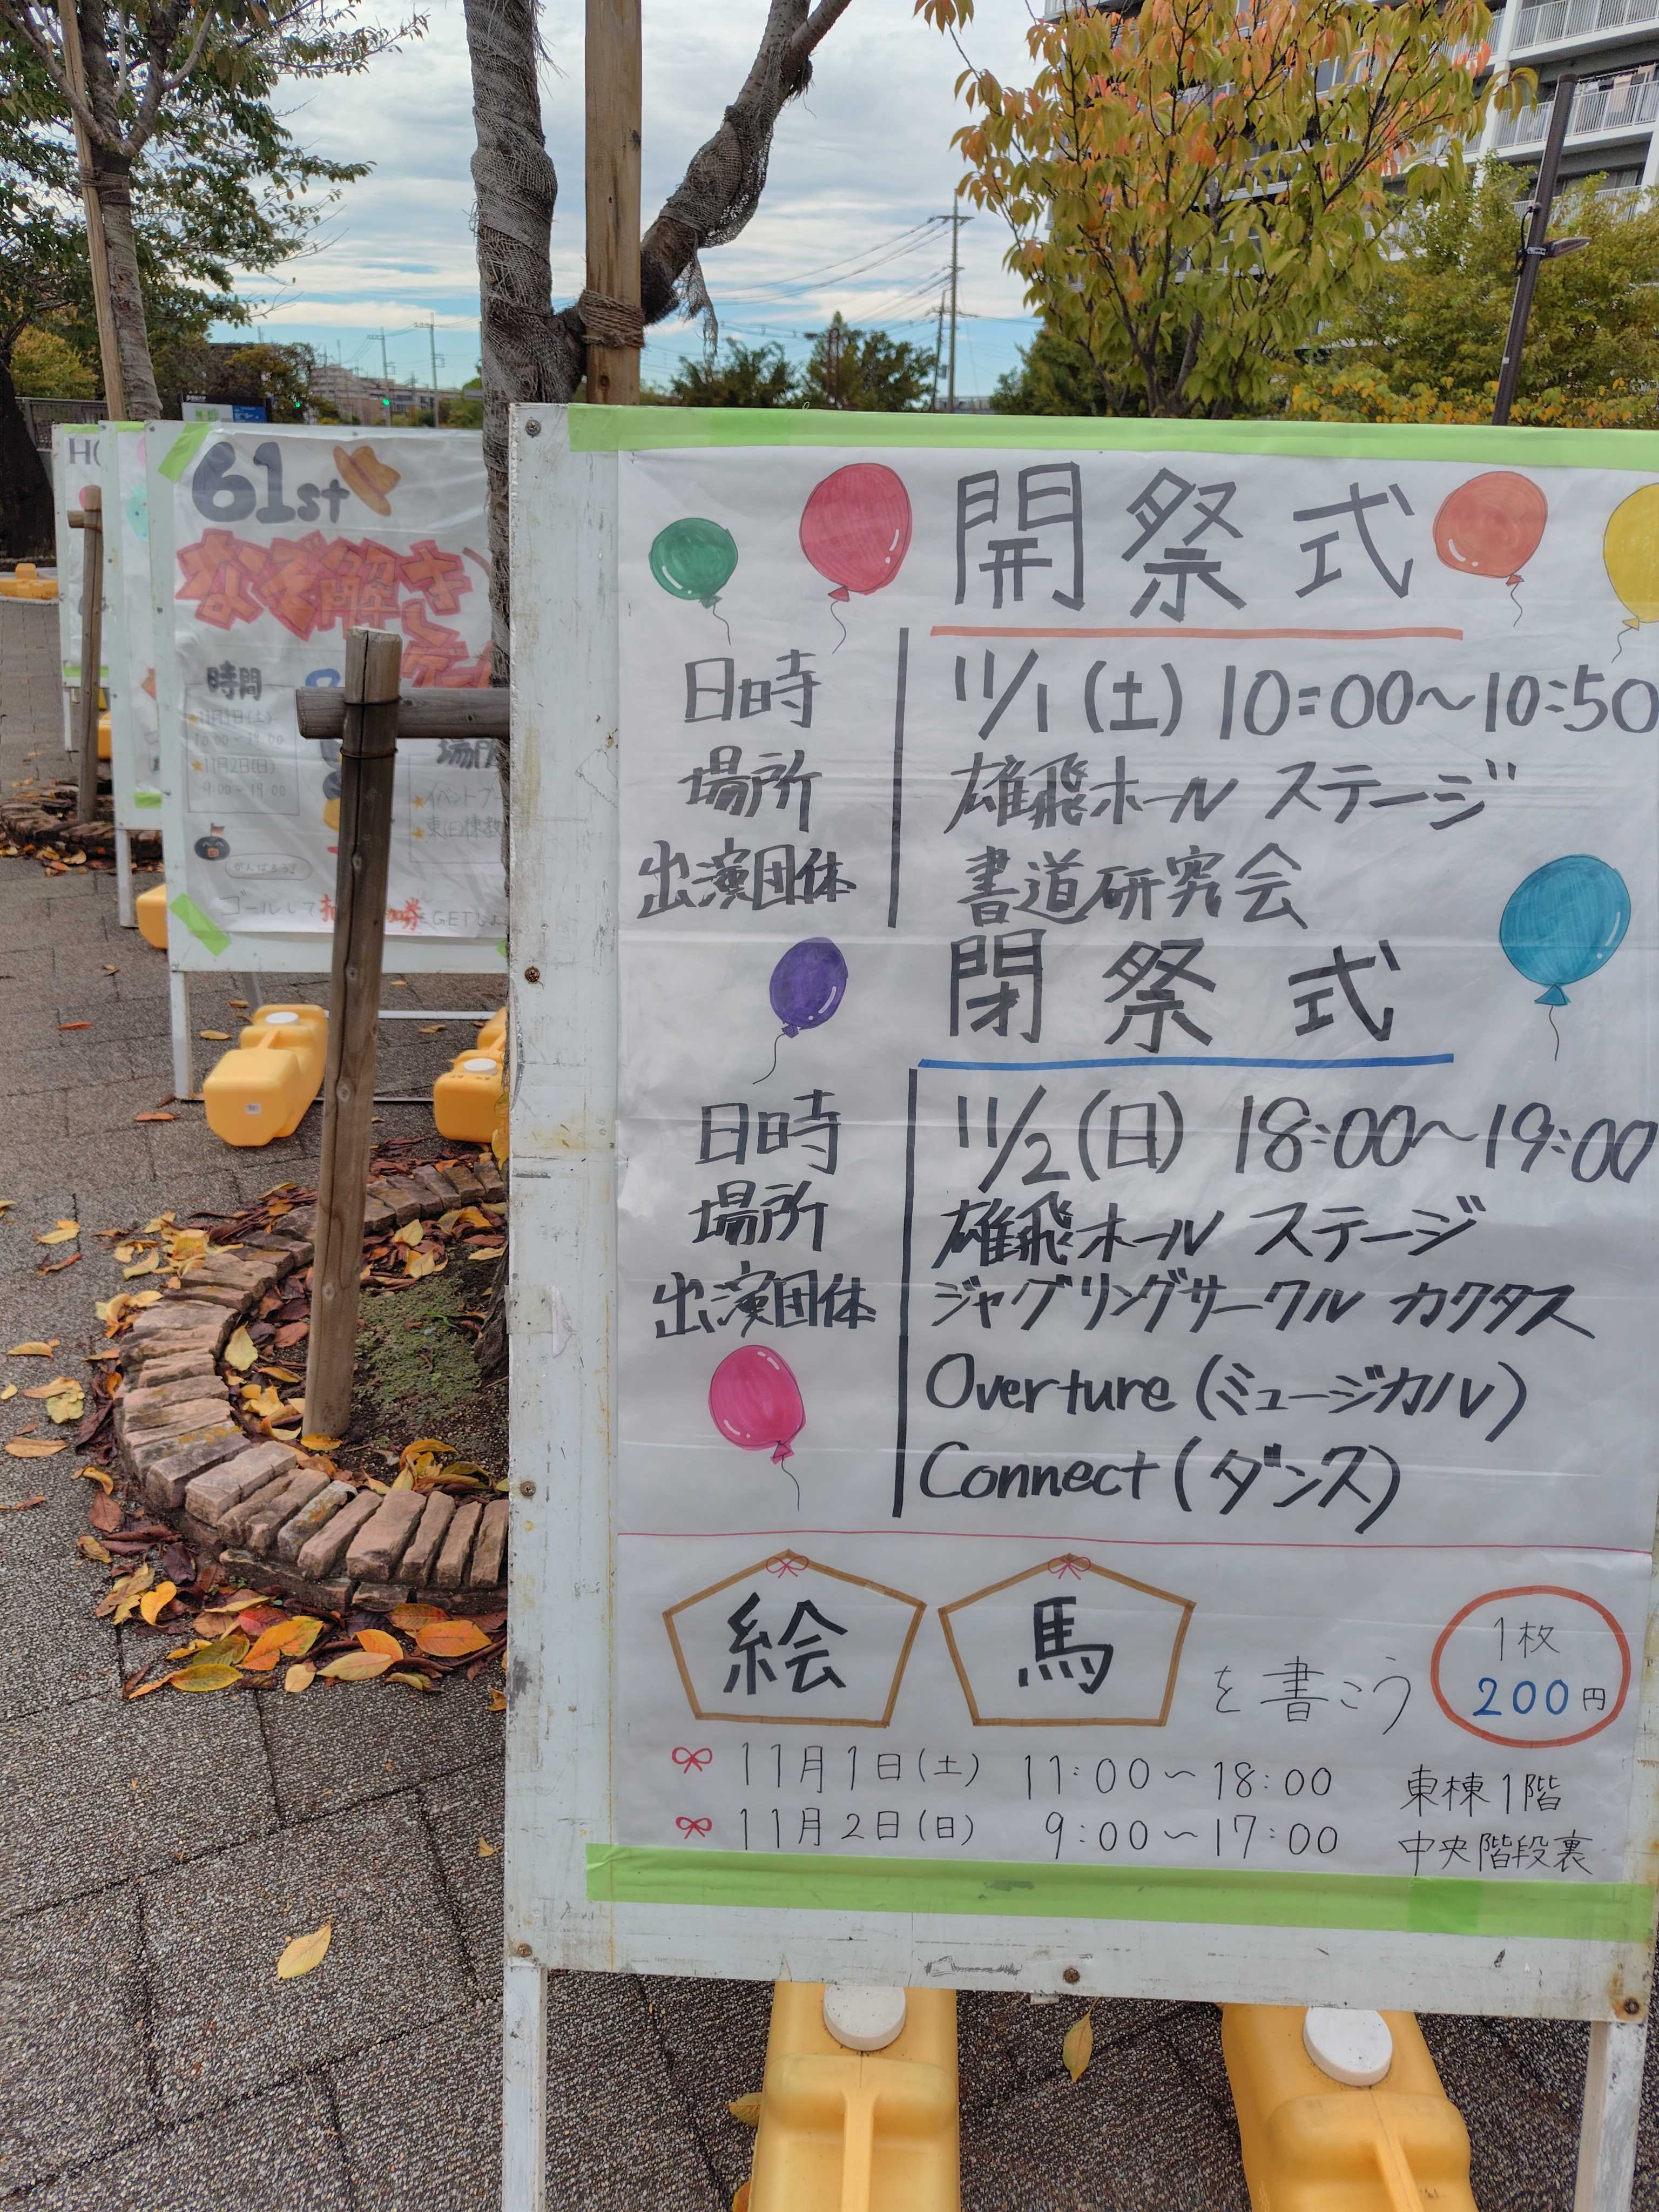 61st
なぞ解き
時間
11月1日(土)
10:00~18:00
11月2日(日)
9:00~19:00
場所
イベントブー
東(E)棟教
がんばろう!
ゴールして
券
GET
開祭式
日時 11/1(土) 10:00~10:50
場所 雄飛ホール ステージ
出演団体 書道研究会
閉祭式
日時 11/2(日) 18:00~19:00
場所 雄飛ホール ステージ
出演団体 ジャグリングサークル カクタス
Overture(ミュージカル)
Connect(ダンス)
絵馬を書こう
1枚
200円
11月1日(土) 11:00~18:00 東棟1階
11月2日(日) 9:00~17:00 中央階段裏